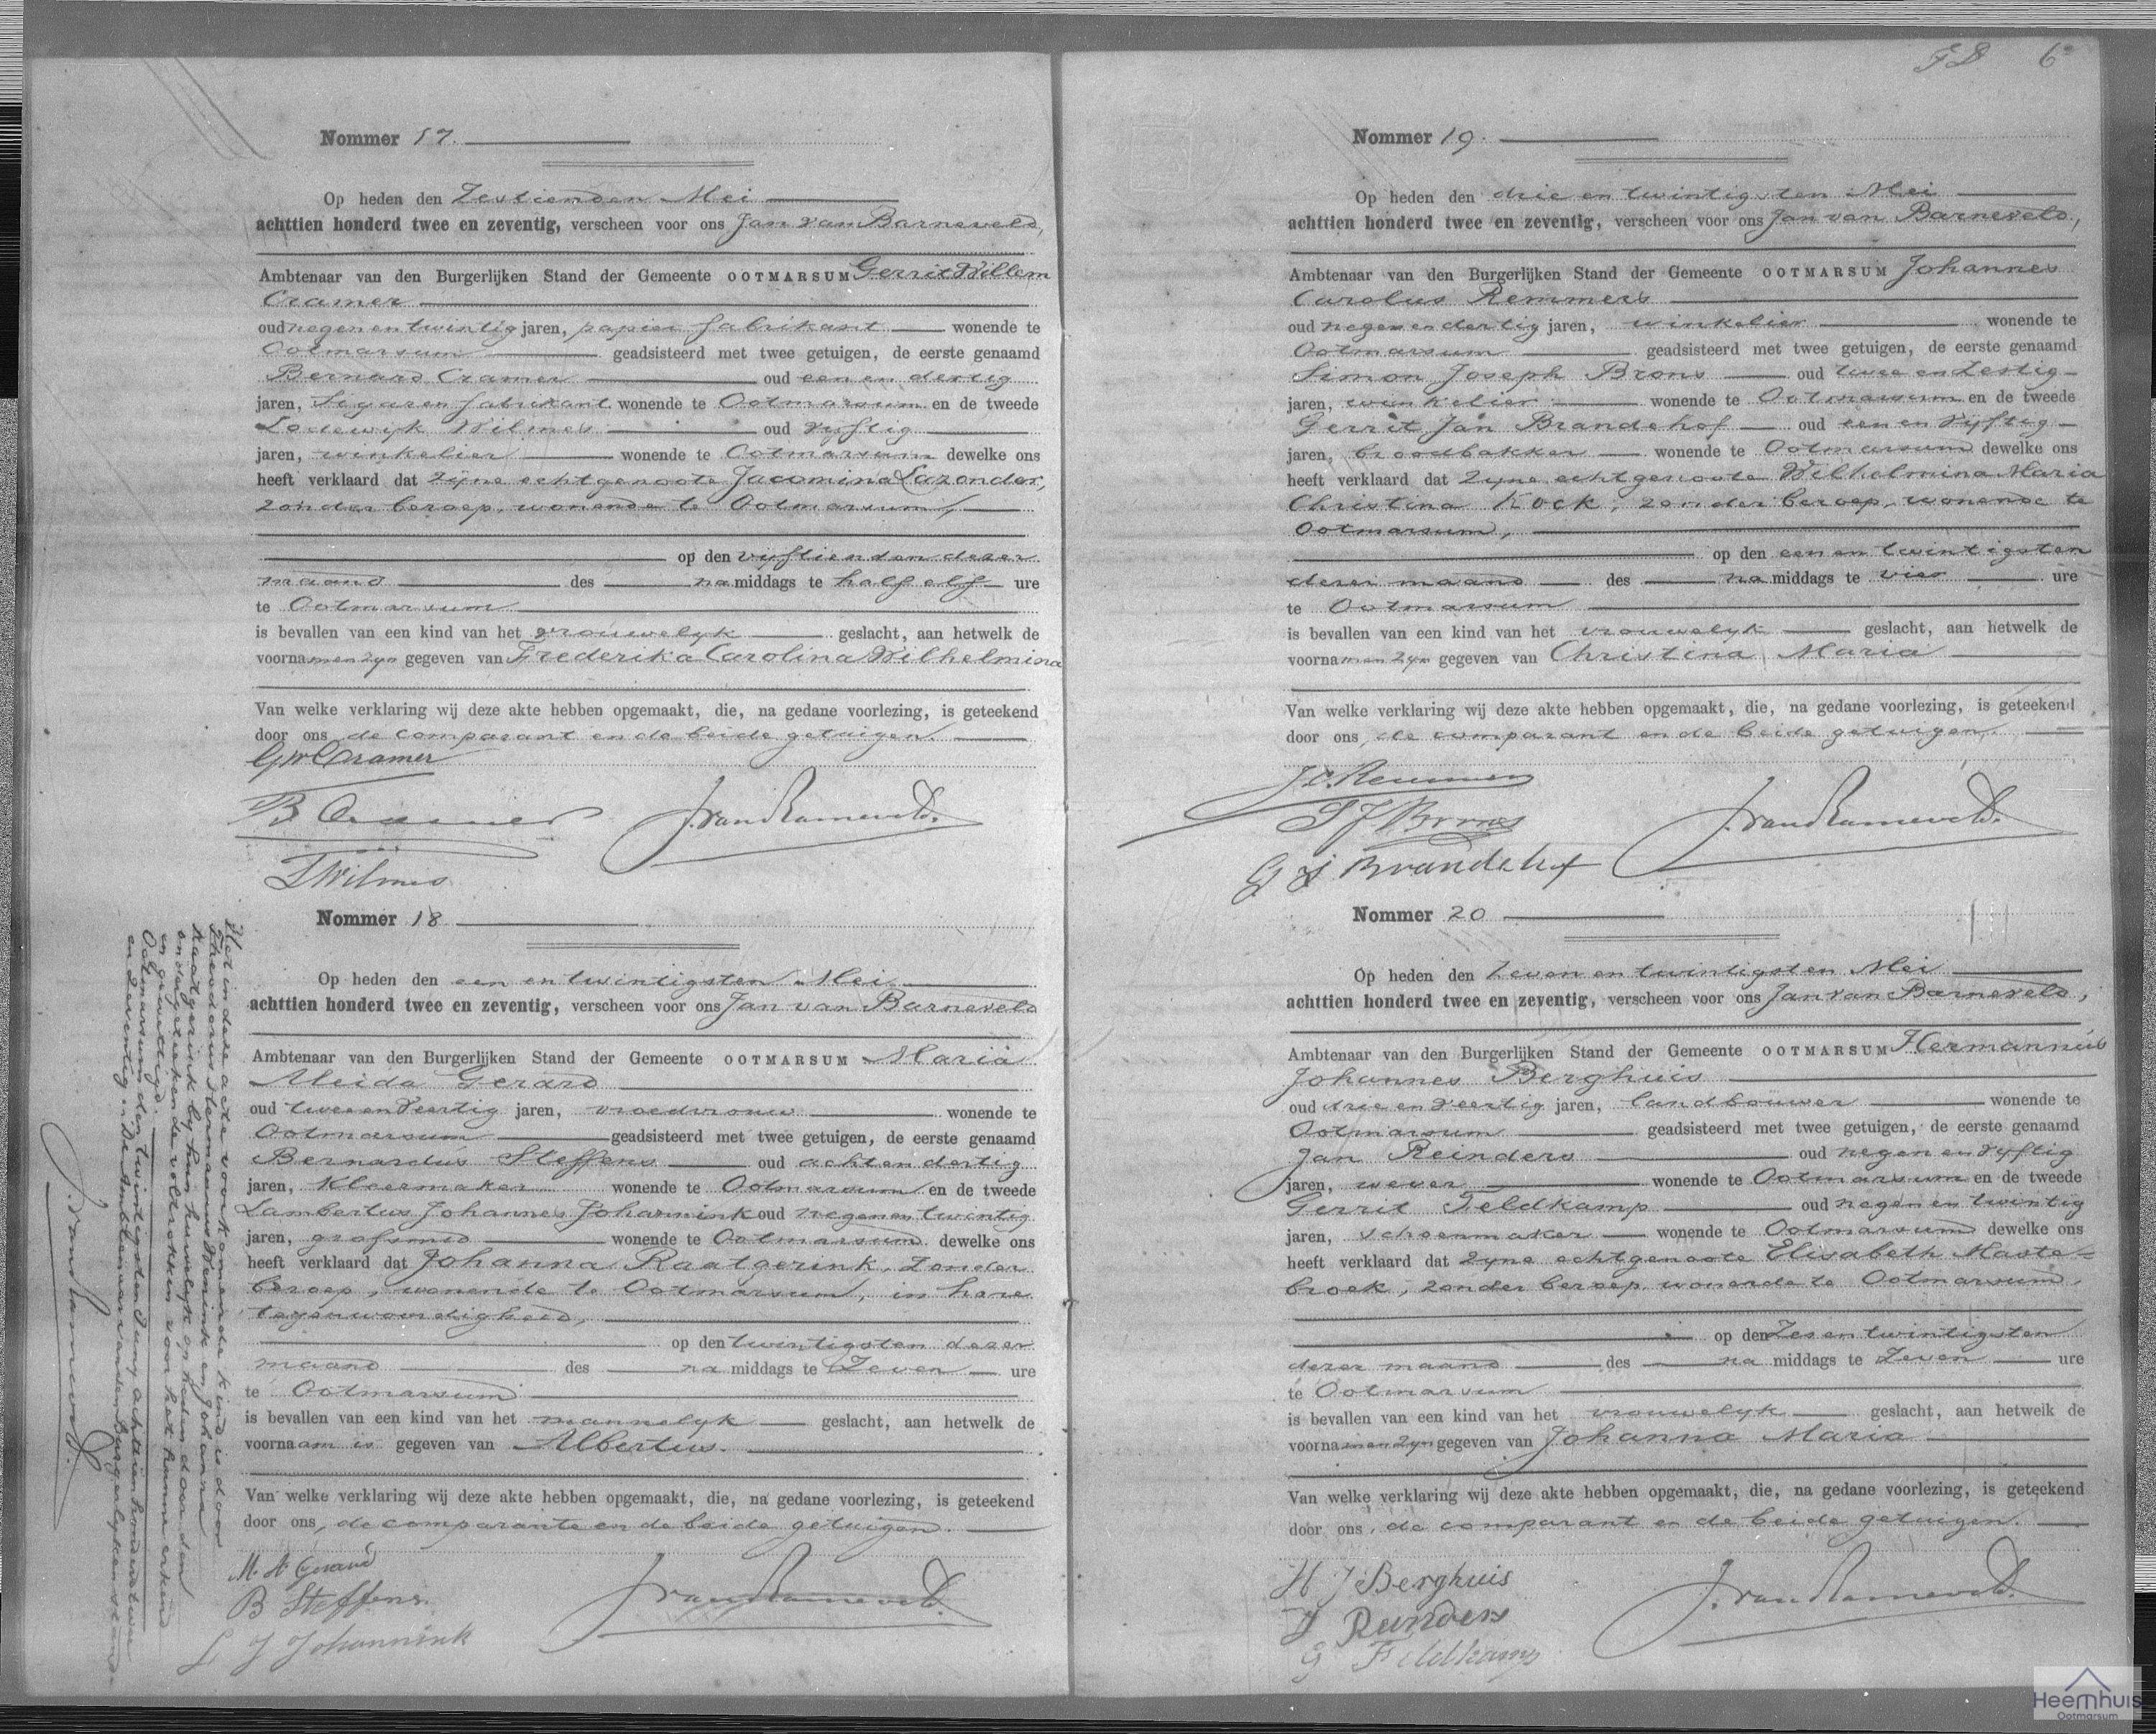 Nommer 17.
Op heden den Zestienden Mei
achttien honderd twee en zeventig, verscheen voor ons Jan van Barneveld,
Ambtenaar van den Burgerlijken Stand der Gemeente OOTMARSUM Gerrit Willem
Cramer
oud negen en twintig jaren, papier fabrikant wonende te
Ootmarsum geadsisteerd met twee getuigen, de eerste genaamd
Bernard Cramer oud een en dertig
jaren, Sigaren fabrikant wonende te Ootmarsum en de tweede
Lodewijk Wilmes oud vyftig
jaren, winkelier wonende te Ootmarsum dewelke ons
heeft verklaard dat zyne echtgenoote Jacomina Lazonder,
zonder beroep, wonende te Ootmarsum,
op den vyftienden dezer
maand des namiddags te half elf ure
te Ootmarsum
is bevallen van een kind van het vrouwelyk geslacht, aan hetwelk de
voornamen zyn gegeven van Frederika Carolina Wilhelmina
Van welke verklaring wij deze akte hebben opgemaakt, die, na gedane voorlezing, is geteekend
door ons, de comparant en de beide getuigen.
GW Cramer
B Cramer J. van Barneveld.
L Wilmes
Nommer 18
Op heden den een en twintigsten Mei
achttien honderd twee en zeventig, verscheen voor ons Jan van Barneveld
Ambtenaar van den Burgerlijken Stand der Gemeente OOTMARSUM Maria
Aleida Gerard
oud twee en veertig jaren, vroedvrouw wonende te
Ootmarsum geadsisteerd met twee getuigen, de eerste genaamd
Bernardus Steffens oud acht en dertig
jaren, Kleermaker wonende te Ootmarsum en de tweede
Lambertus Johannes Johannink oud negen en twintig
jaren, grofsmid wonende te Ootmarsum dewelke ons
heeft verklaard dat Johanna Raatgerink, zonder
beroep, wonende te Ootmarsum, in hare
tegenwoordigheid,
op den twintigsten dezer
maand des na middags te Zeven ure
te Ootmarsum
is bevallen van een kind van het mannelyk geslacht, aan hetwelk de
voornaam is gegeven van Albertus.
Van welke verklaring wij deze akte hebben opgemaakt, die, na gedane voorlezing, is geteekend
door ons, de comparante en de beide getuigen.
M. A Gerard
B Steffens J. van Barneveld.
L J Johannink
Het in deze acte voorkomende kind is door
Theodorus Hermannus en Johanna
Raatgerink by hun huwelyk op heden door den
ondergeteekende voltrokken voor het hunne erkend
en gewettigd.
Ootmarsum den twintigsten Juny achttien honderd twee
en zeventig. De Ambtenaar van den Burgerlyken stand.
J. van Barneveld.
FD 6
Nommer 19.
Op heden den drie en twintigsten Mei
achttien honderd twee en zeventig, verscheen voor ons Jan van Barneveld,
Ambtenaar van den Burgerlijken Stand der Gemeente OOTMARSUM Johannes
Carolus Remmers
oud negen en dertig jaren, winkelier wonende te
Ootmarsum geadsisteerd met twee getuigen, de eerste genaamd
Simon Joseph Brons oud twee en zestig
jaren, winkelier wonende te Ootmarsum en de tweede
Gerrit Jan Brandehof oud een en vyftig
jaren, broodbakker wonende te Ootmarsum dewelke ons
heeft verklaard dat zyne echtgenoote Wilhelmina Maria
Christina Kock, zonder beroep, wonende te
Ootmarsum,
op den een en twintigsten
dezer maand des na middags te vier ure
te Ootmarsum
is bevallen van een kind van het vrouwelyk geslacht, aan hetwelk de
voornamen zyn gegeven van Christina Maria
Van welke verklaring wij deze akte hebben opgemaakt, die, na gedane voorlezing, is geteekend
door ons, de comparant en de beide getuigen.
J.C. Remmers
S J Brons J. van Barneveld.
G J Brandehof
Nommer 20
Op heden den Zeven en twintigsten Mei
achttien honderd twee en zeventig, verscheen voor ons Jan van Barneveld,
Ambtenaar van den Burgerlijken Stand der Gemeente OOTMARSUM Hermannus
Johannes Berghuis
oud drie en veertig jaren, landbouwer wonende te
Ootmarsum geadsisteerd met twee getuigen, de eerste genaamd
Jan Reinders oud negen en vyftig
jaren, wever wonende te Ootmarsum en de tweede
Gerrit Feldkamp oud negen en twintig
jaren, schoenmaker wonende te Ootmarsum dewelke ons
heeft verklaard dat zyne echtgenoote Elisabeth Maste=
broek, zonder beroep, wonende te Ootmarsum,
op den Zes en twintigsten
dezer maand des na middags te Zeven ure
te Ootmarsum
is bevallen van een kind van het vrouwelyk geslacht, aan hetwelk de
voornamen zyn gegeven van Johanna Maria
Van welke verklaring wij deze akte hebben opgemaakt, die, na gedane voorlezing, is geteekend
door ons, de comparant en de beide getuigen.
H J Berghuis
J Reinders J. van Barneveld.
G Feldkamp
Heemhuis
Ootmarsum